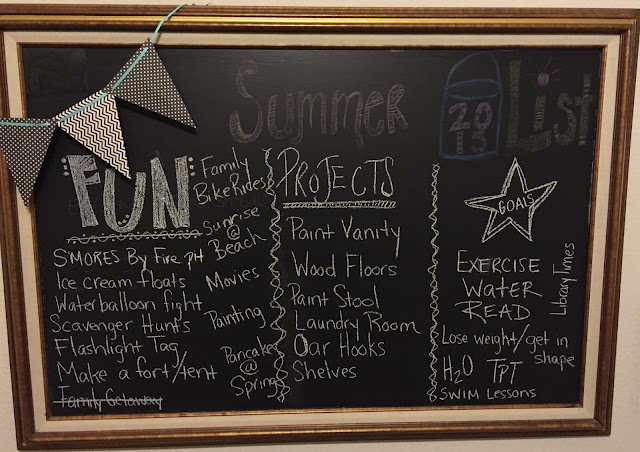 Summer 2015 List
FUN
S'MORES By Fire pit
Ice cream floats
Water balloon fight
Scavenger Hunts
Flashlight Tag
Make a fort/tent
Family Getaway
Family
Bike Rides
Sunrise
@
Beach
Movies
Painting
Pancakes
@
Springs
PROJECTS
Paint Vanity
Wood Floors
Paint Stool
Laundry Room
Oar Hooks
Shelves
GOALS
EXERCISE
WATER
READ
Library Times
Lose weight/get in
shape
H2O TPT
SWIM LESSONS